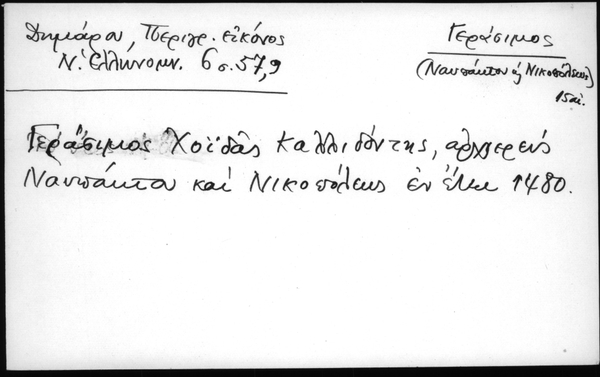 Δημάρου, Περιγρ. εἰκόνος
Ν. Ἑλληνομν. 6 σ. 57,9
Γεράσιμος
(Ναυπάκτου ἢ Νικοπόλεως)
15 αἰ.
Γεράσιμος Χοϊδᾶς Καλλιδόντης, ἀρχιερεὺς
Ναυπάκτου καὶ Νικοπόλεως ἐν ἔτει 1480.